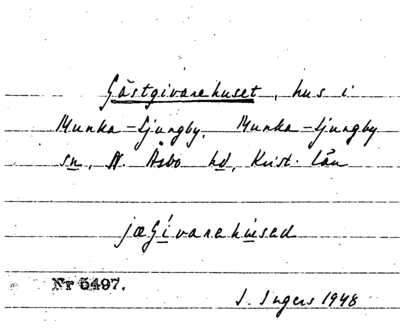 Gästgivarehuset, hus i
Munka-Ljungby, Munka-Ljungby
sn, N. Åsbo hd, Krist. län
jæGivarehused
Nr 5497.
I. Ingers 1948